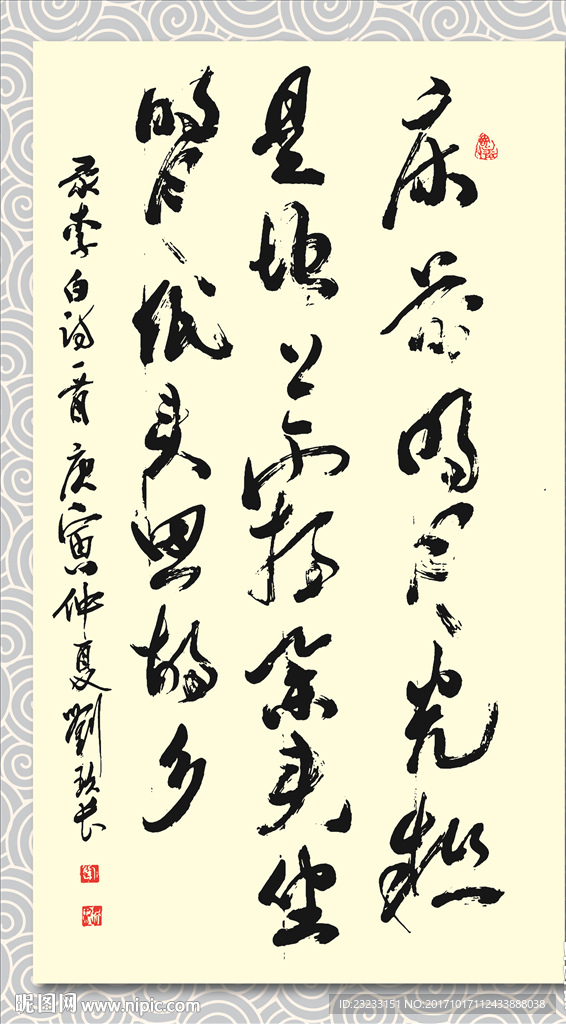 床前明月光疑
是地上霜举头望
明月低头思故乡
录李白诗一首庚寅仲夏劉
昵图网 www.nipic.com
ID:23233151 NO:20171017112433888038